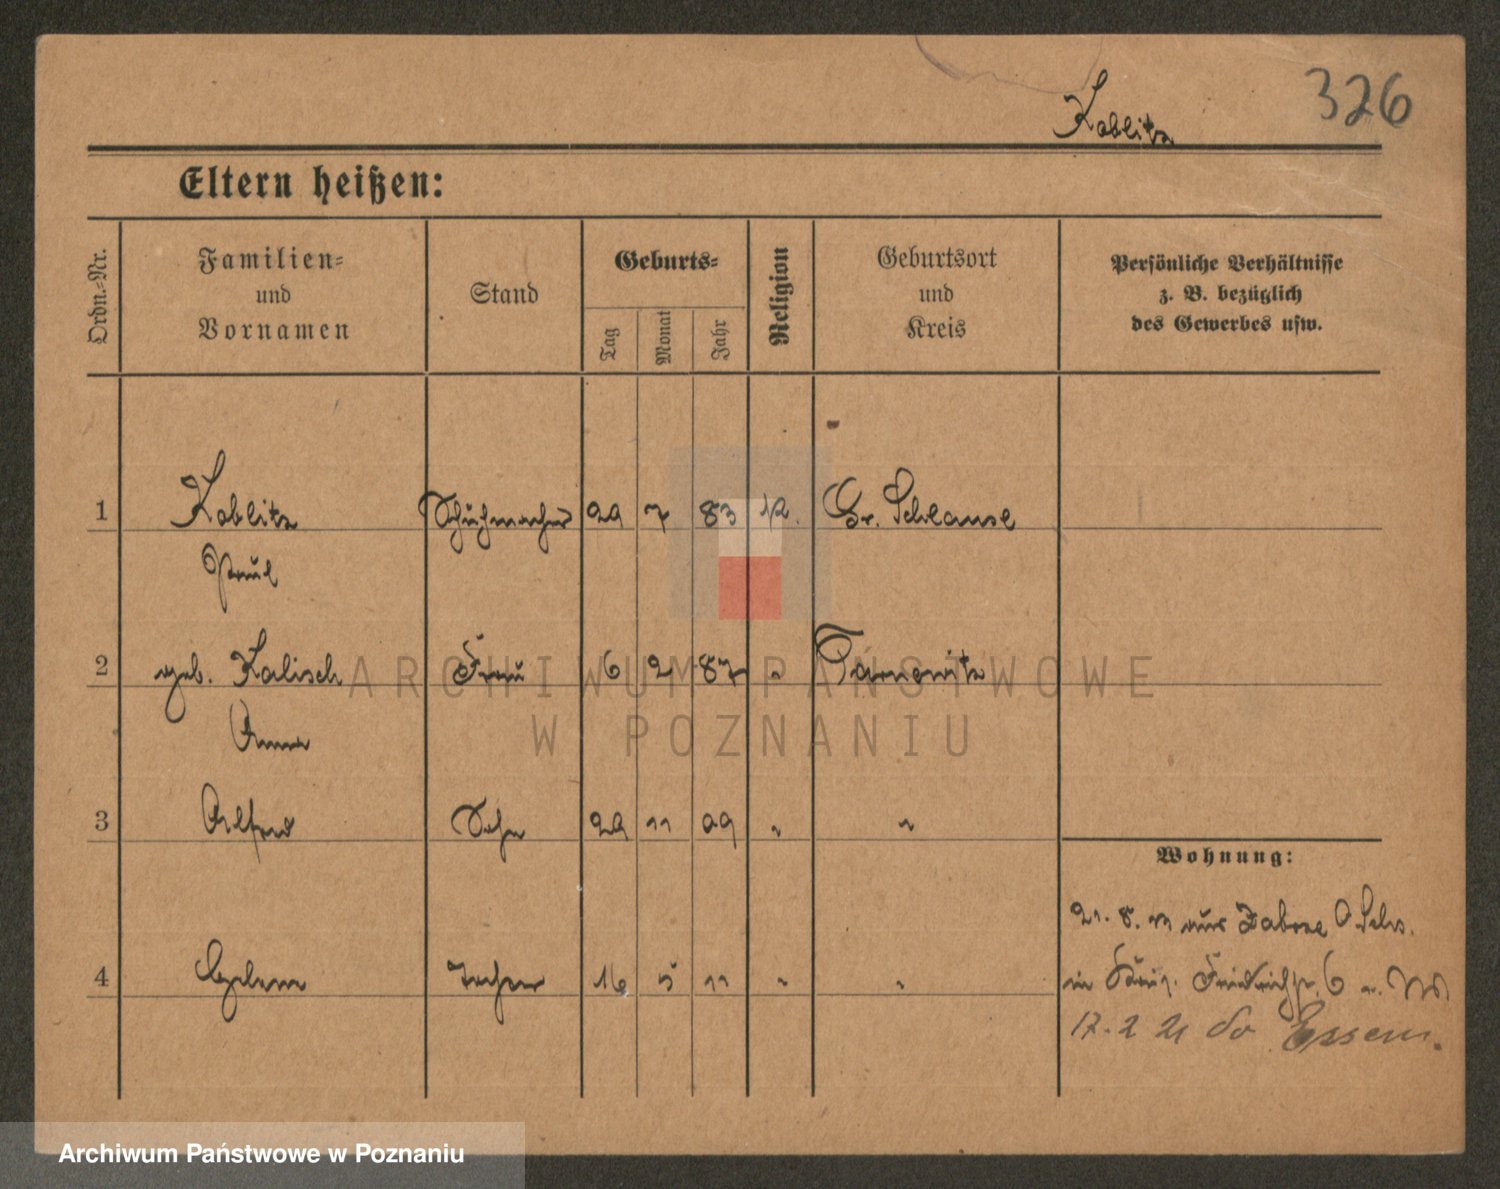 326
Koblitz
Eltern heißen:
Ordn.-Nr.
Familien-
und
Vornamen
Stand
Geburts-
Tag
Monat
Jahr
Religion
Geburtsort
und
Kreis
Persönliche Verhältnisse
z. B. bezüglich
des Gewerbes usw.
1 Koblitz Schuhmacher 29 7 83 Gr. Schlause
Paul
2 geb. Kalisch Frau 6 2 87 " Tarnowitz
Anna
3 Alfred Sohn 29 11 09 " "
Wohnung:
4 Tochter 16 5 11 " "
21. 8. aus Zabrze O. Schs.
in 6
17. 2 21 do Essen.
ARCHIWUM PAŃSTWOWE
W POZNANIU
Archiwum Państwowe w Poznaniu